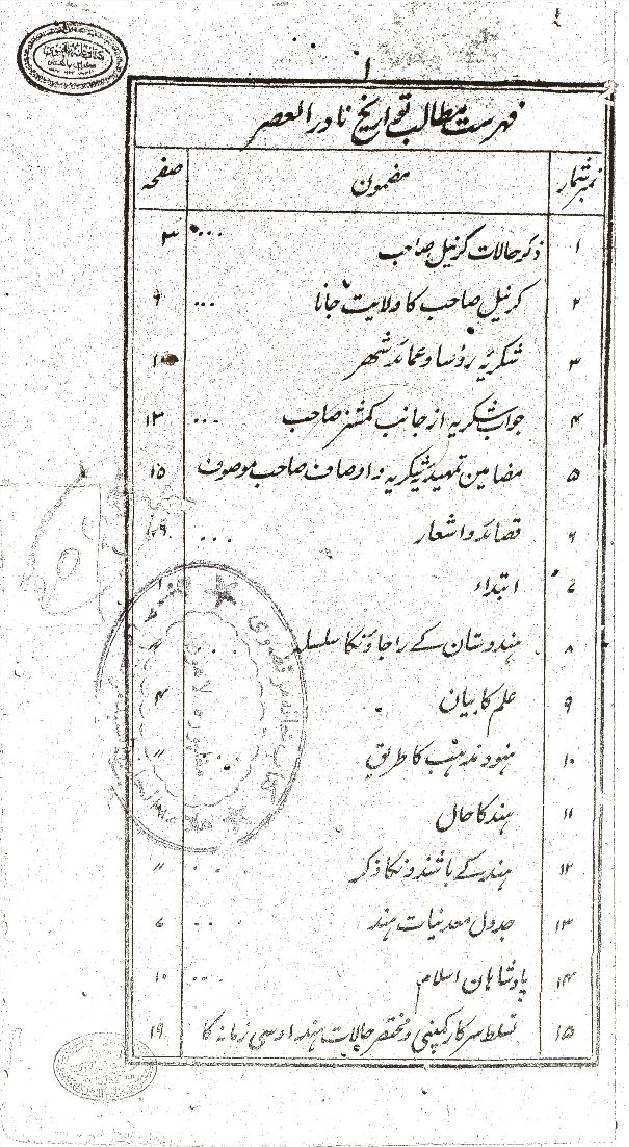 ۱
فہرست مطالب تواریخ نادر العصر
نمبر شمار مضمون صفحہ
۱ ذکر حالات کرنیل صاحب ... ۳
۲ کرنیل صاحب کا ولایت جانا ... ۶
۳ شکریہ رؤسا و عمائد شہر
۴ جواب شکریہ از جانب کمشنر صاحب ... ۱۳
۵ مضامین تمہید شکریہ و اوصاف صاحب موصوف ۱۵
۶ قصائد و اشعار ...
۷ ابتداء ۱
۸ ہندوستان کے راجاؤنکا سلسلہ ... 〃
۹ علم کا بیان ۴
۱۰ ہنود مذہب کا طریق ... 〃
۱۱ ہند کا حال
۱۲ ہند کے باشندونکا ذکر ... 〃
۱۳ جدول معدنیات ہند ... ۷
۱۴ پادشاہان اسلام ... ۱۰
۱۵ تسلط سرکار کمپنی و مختصر حالات ہند اوسی زمانہ کا ۱۹